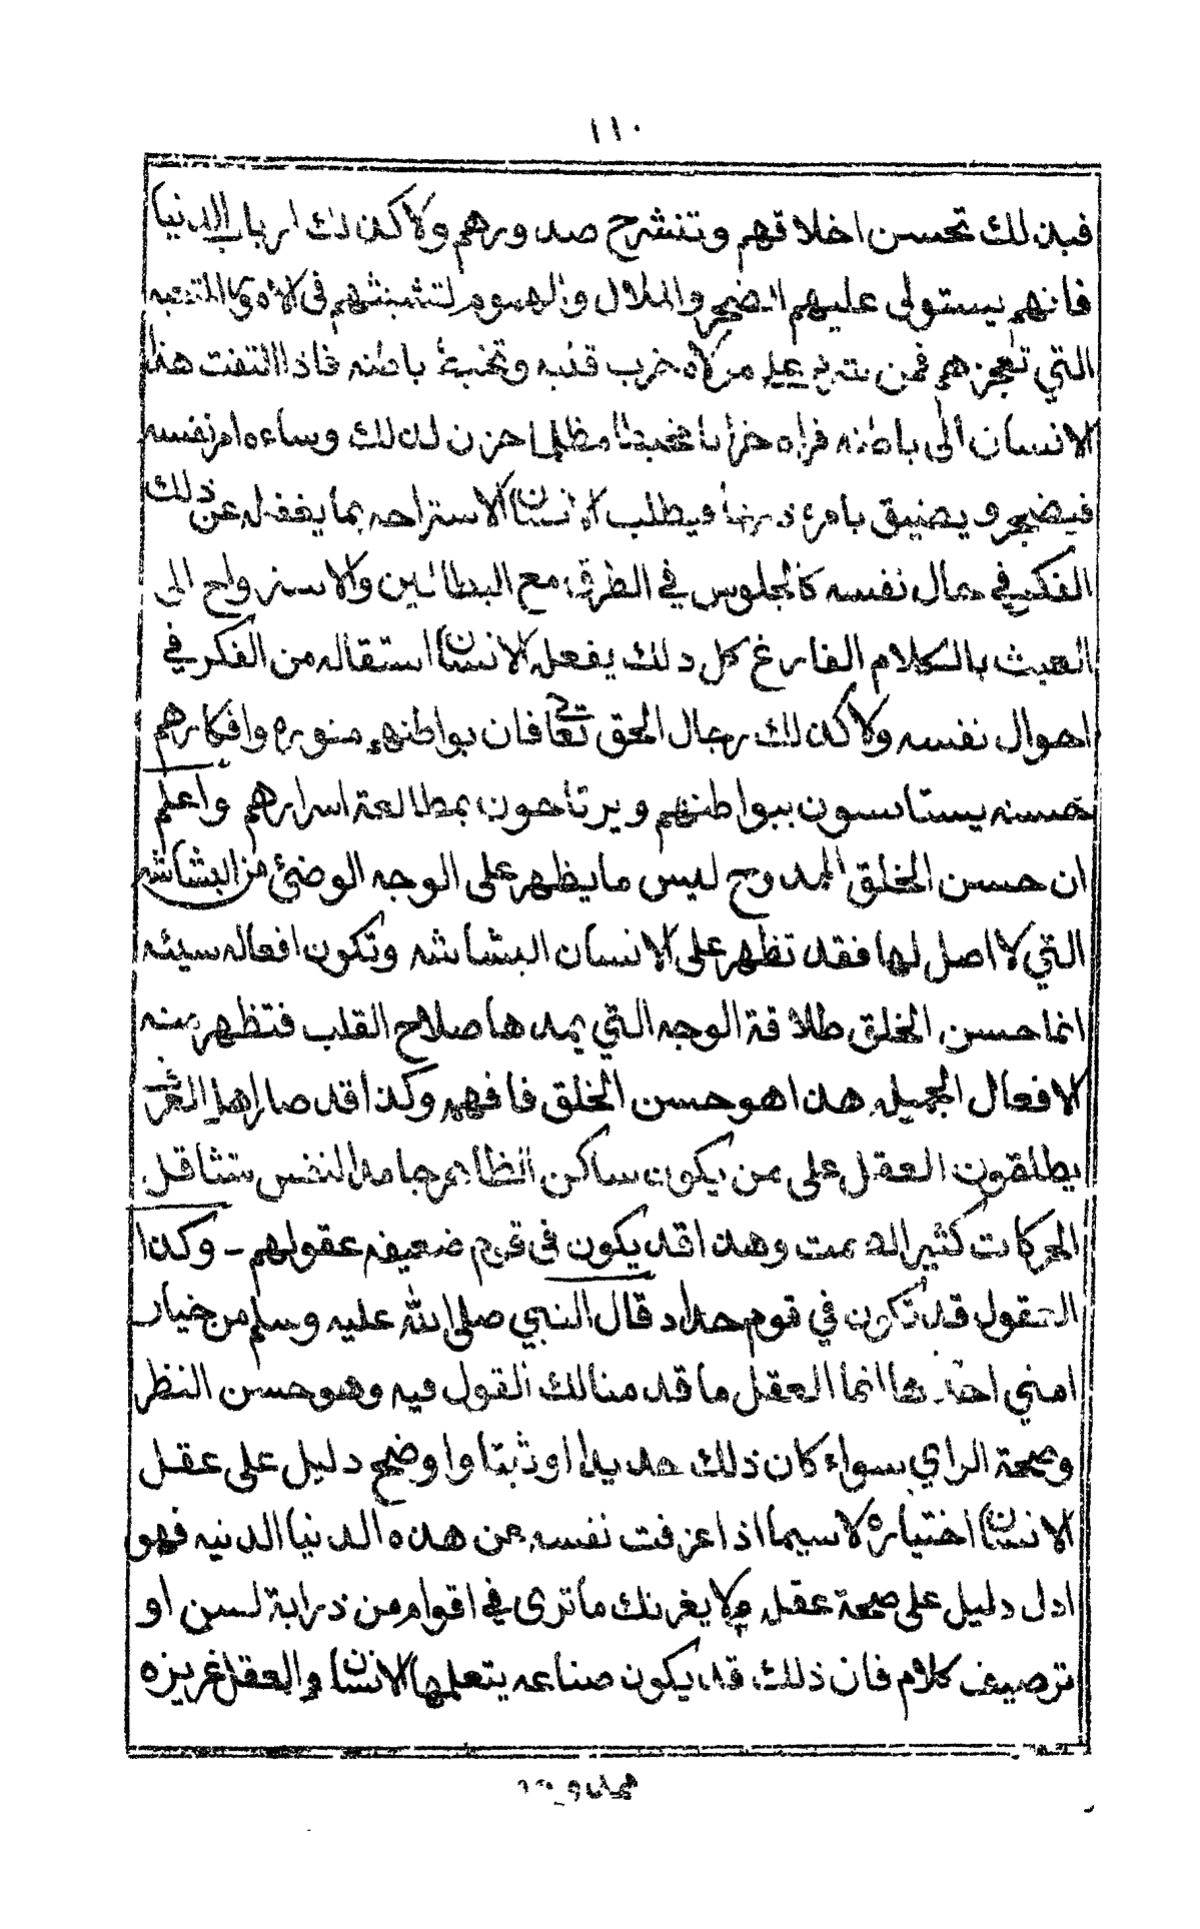 ١١٠
فبذلك تحسن اخلاقهم وتنشرح صدورهم ولا كذلك ارباب الدنيا
فانهم يستولى عليهم الضجر والملال والهموم لتشبثهم في المتعبه
التي تعجزهم فمن خرب قلبه باطنه فاذا التفت هذا
الانسان الى باطنه فراه خرابا مظلما حزن لذلك وساءه امر نفسه
فيضجر ويضيق بامره ذرعا فيطلب الانسان الاستراحه بما يغفله عن ذلك
الفكر في حال نفسه كالجلوس في الطرق مع البطالين والاسترواح الى
العبث بالكلام الفارغ كل ذلك يفعله الانسان استقاله من الفكر في
احوال نفسه ولا كذلك رجال الحق تعالى فان بواطنهم منوره وافكارهم
حسنه يستانسون ببواطنهم ويرتاحون بمطالعة اسرارهم واعلم
ان حسن الخلق الممدوح ليس ما يظهر على الوجه الوضئ من البشاشه
التي لا اصل لها فقد تظهر على الانسان البشاشه وتكون افعاله سيئه
انما حسن الخلق طلاقة الوجه التي يمدها صلاح القلب فتظهر منه
الافعال الجميله هذا هو حسن الخلق فافهم وكذا قد صار اهل
يطلقون العقل على من يكون ساكن الظاهر جامد النفس متثاقل
الحركات كثير الصمت وهذا قد يكون في قوم ضعيفه عقولهم - وكذا
العقول قد تكون في قوم حداد قال النبي صلى الله عليه وسلم من خيار
امتي احدها انما العقل ما قدمنا لك القول فيه وهو حسن النظر
وصحة الراي سواء كان ذلك حديدا او ثبتا واوضح دليل على عقل
الانسان اختياره لا سيما اذا عزفت نفسه عن هذه الدنيا الدنيه فهو
ادل دليل على صحة عقله ولا يغرنك ما ترى في اقوام من ذرابة لسن او
ترصيف كلام فان ذلك قد يكون صناعه يتعلمها الانسان والعقل غريزه